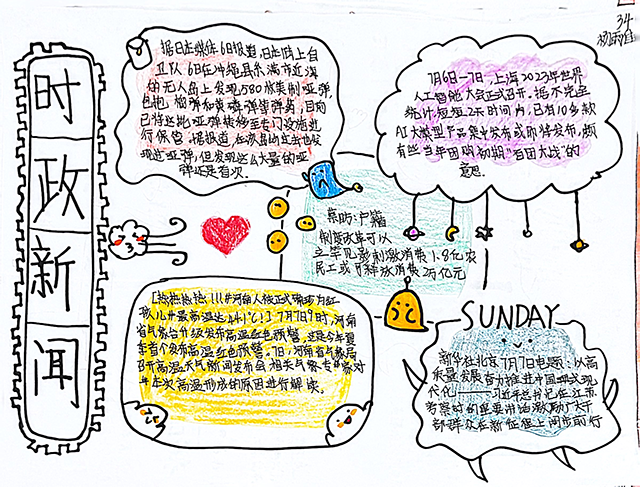 34
时政新闻
据日本媒体6日报道,日本陆上自
卫队6日在冲绳县糸满市近海
的无人岛上发现580水集制 亚弹
已将这批亚弹转移至专门设施进
行保管。据报道,在该岛
现过亚弹,但发现这么大量的亚
弹还是首次。
7月6日—7日,上海2023年世界
人工智能大会正式召开,据不完全
统计,短短2天时间内,已有10多款
AI大模型产品集中发布或即将发布,颇
有些当年团购初期"百团大战"的
意思。
蔡昉:户籍
制度改革可以
立竿见影刺激消费 1.8亿农
民工或可释放消费2万亿元
【热热热热!!!#河南人被正式确诊为红
孩儿#最高温达41℃!】7月7日1时,河南
省气象台升级发布高温红色预警,这是今年夏
季首个发布高温红色预警。7日,河南省气象局
召开高温天气新闻发布会 相关气象专家对
本次高温形成的原因进行解读。
SUNDAY
新华社北京7月7日电题:以高
质量发展奋力推进中国式现
代化——习近平总书记在江苏
考察时的重要讲话激励广大干
部群众在新征程上阔步前行